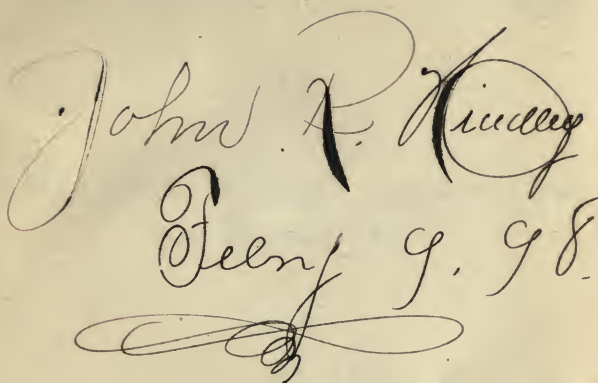 John R. Kindley
Feby 9. 98.